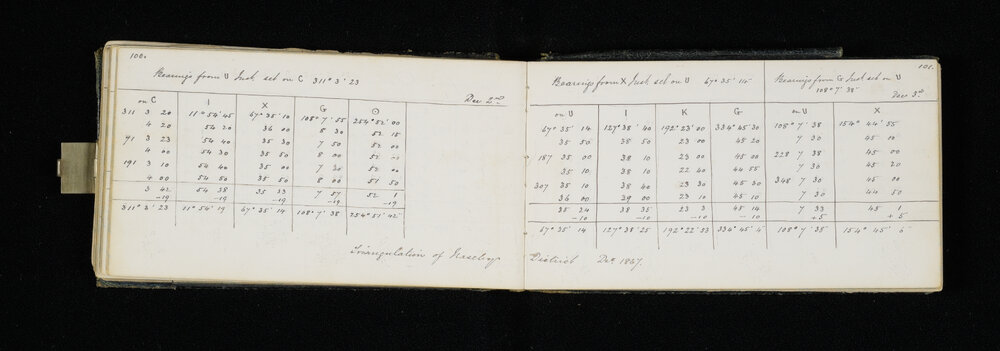 100.
Bearings from U Inst. set on C 311° 3' 23
Dec 2nd
on C I X G ⊙
311 3 20 11° 54' 45 67° 35' 10 108° 7' 55 254° 52' 00
4 20 54 20 36 00 8 30 52 15
91 3 23 54 40 35 30 7 50 52 00
4 00 54 30 35 50 8 00 52 00
191 3 10 54 40 35 00 7 30 52 00
4 00 54 50 35 50 8 00 51 50
3 42 54 38 35 33 7 57 52 1
-19 -19 -19 -19 -19
311° 3' 23 11° 54' 19 67° 35' 14 108° 7' 38 254° 51' 42
Triangulation of Naseby
101.
Bearings from X Inst set on U 67° 35' 14
Bearings from G Inst set on U
108° 7' 38
Dec 3rd
on U I K G on U X
67° 35' 14 127° 38' 40 192° 23' 00 334° 45 30 108° 7' 38 154° 44' 55
35 50 38 50 23 00 45 20 7 30 45 00
187 35 00 38 10 23 00 45 00 228 7 38 45 00
35 10 38 10 22 40 44 55 7 30 45 20
307 35 10 38 40 23 30 45 30 348 7 30 45 00
36 00 39 00 23 10 45 10 7 30 44 50
35 24 38 35 23 3 45 14 7 33 45 1
-10 -10 -10 -10 +5 +5
67° 35' 14 127° 38' 25 192° 22' 53 334° 45' 4 108° 7' 38 154° 45' 6
District Dec 1867.